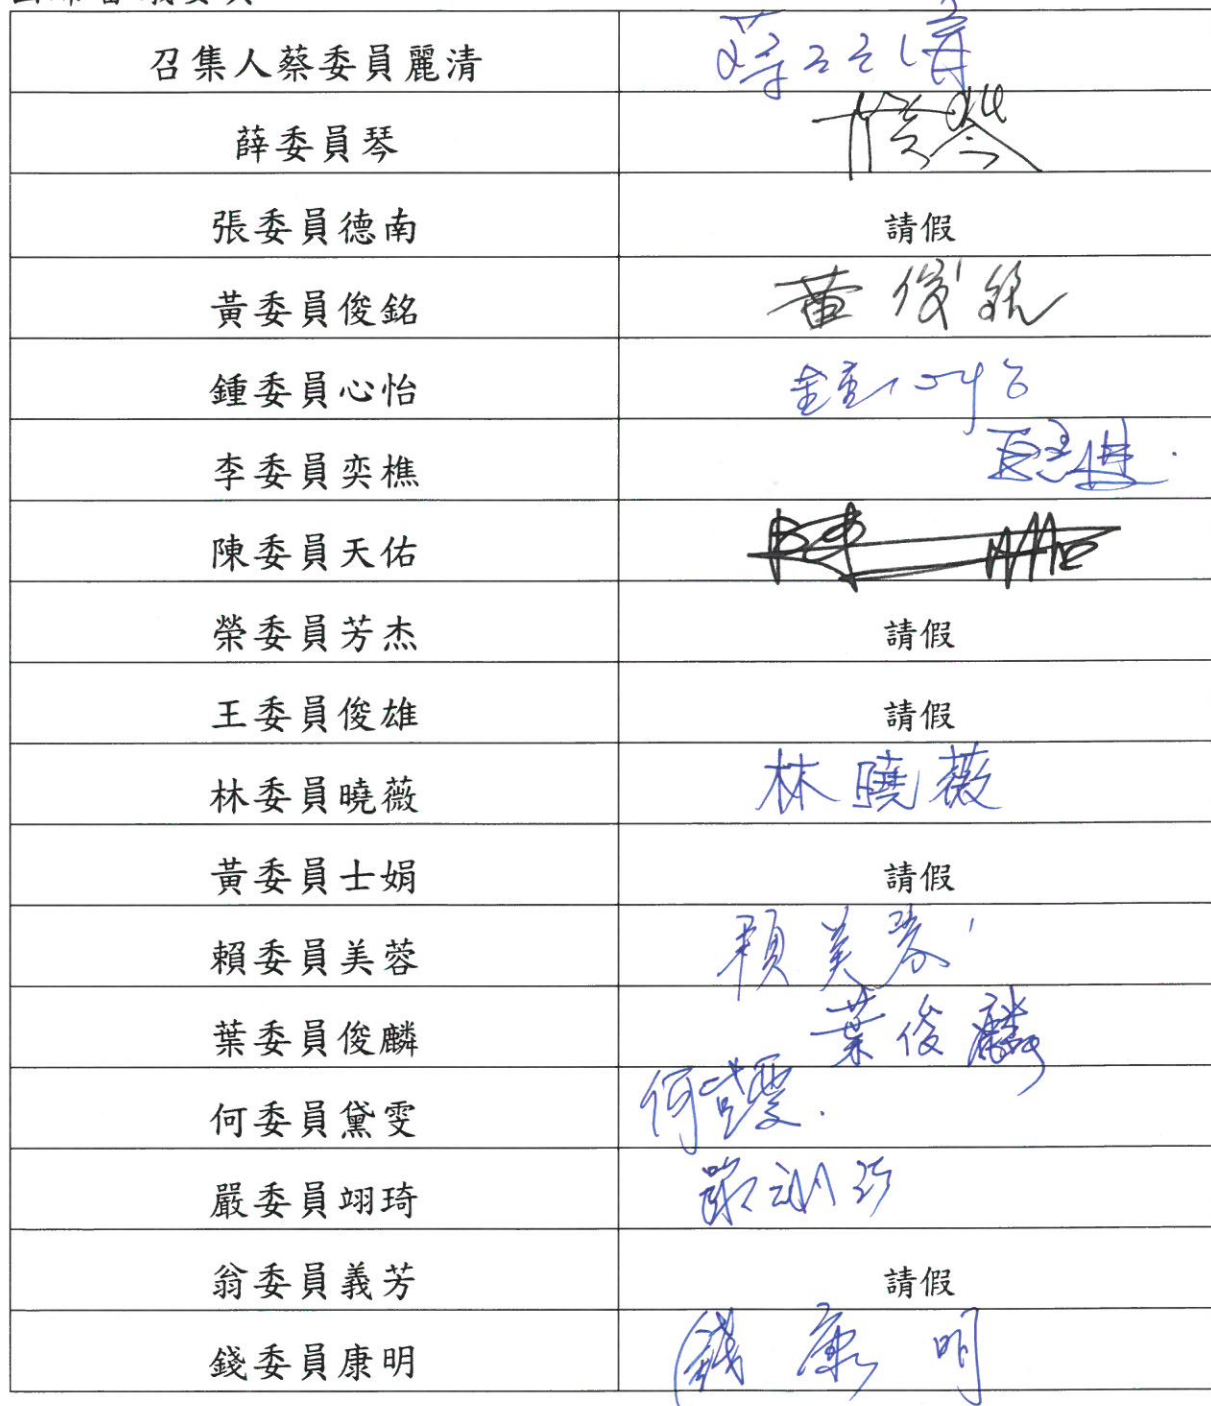 召集人蔡委員麗清
薛委員琴
張委員德南 請假
黃委員俊銘 黃俊銘
鍾委員心怡 鍾心怡
李委員奕樵
陳委員天佑
榮委員芳杰 請假
王委員俊雄 請假
林委員曉薇 林曉薇
黃委員士娟 請假
賴委員美蓉 賴美蓉
葉委員俊麟 葉俊麟
何委員黛雯 何黛雯
嚴委員翊琦 嚴翊琦
翁委員義芳 請假
錢委員康明 錢康明